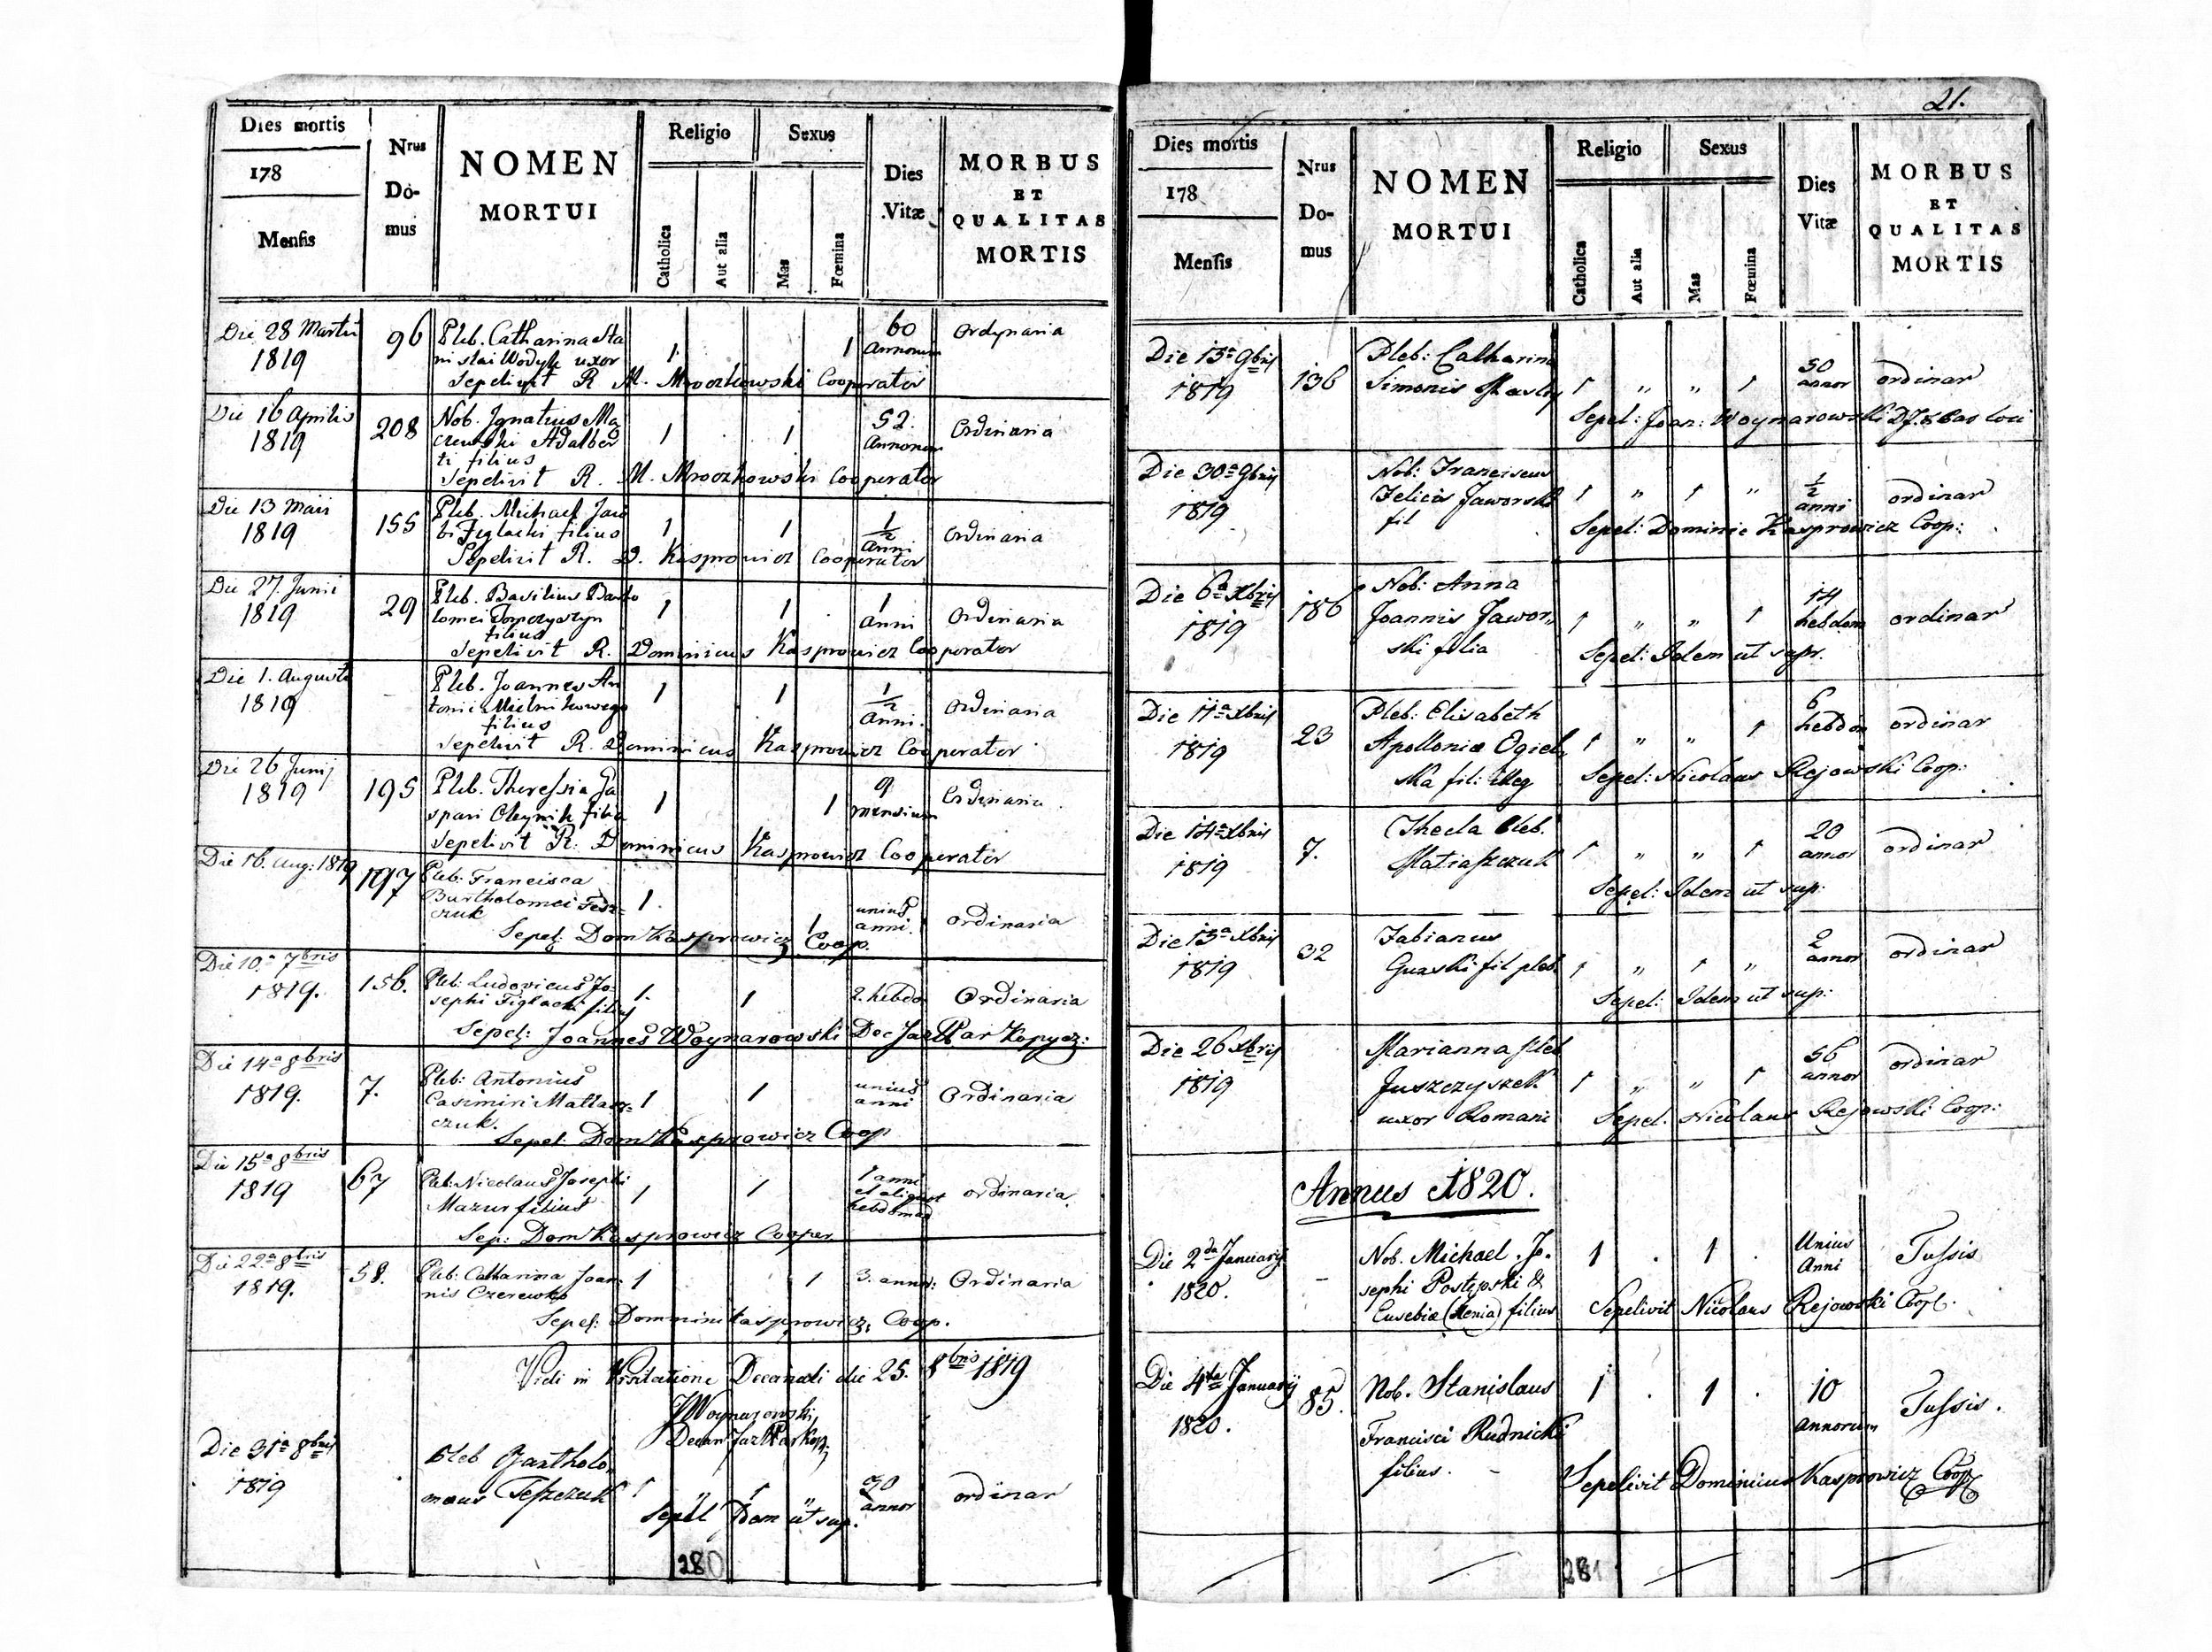 Dies mortis
178
Mensis
Nrus
Do-
mus
NOMEN
MORTUI
Religio
Catholica
Aut alia
Sexus
Mas
Fœmina
Dies
Vitæ
MORBUS
ET
QUALITAS
MORTIS
Die 28 Martii 96 Pleb. Catharina Sta 60 Ordynaria
1819 ni slai Wodyk uxor 1. 1 Annorum
Sepelivit R M. Mroczkowski Cooperator
Die 16 Aprilis 208 Nob. Ignatius Ma 52. Ordinaria
1819 czewski Adalber 1 1 Annorum
ti filius
Sepelivit R. M. Mroczkowski Cooperator
Die 13 Maii 155 Pleb. Michael Jaco 1/2 Ordinaria
1819 bi Figlacki filius 1 1 Anni
Sepelivit R. D. Kasprowicz Cooperator
Die 27. Junii 29 Pleb. Basilius Barto 1 Ordinaria
1819 lomei filius 1 1 Anni
Sepelivit R. Dominicus Kasprowicz Cooperator
Die 1. Augusti Pleb. Joannes An 1 1 1/2 Ordinaria
1819 tonii Mielnikowego Anni.
filius
Sepelivit R. Dominicus Kasprowicz Cooperator
Die 26 Junij 195 Pleb. Theressia Ga 9 Ordinaria
1819 spari Oleynik filia 1 1 mensium
Sepelivit R. Dominicus Kasprowicz Cooperator
Die 16. Aug: 1819 197 Pleb: Francisca
Bartholomei Fesz= 1. 1 unius anni. Ordinaria
czuk
Sepel: Dom Kasprowicz Coop.
Die 10.a 7bris 156. Pleb: Ludovicus Jo= 1. 1 2. hebdo Ordinaria
1819. sephi Figlacki filius
Sepel: Joannes Woynarowski Dec Jazl Par Kopycz:
Die 14a 8bris 7. Pleb: Antonius unius
1819. Casimiri Matiasz= 1 1 anni Ordinaria
czuk.
Sepel: Dom Kasprowicz Coop
Die 15a 8bris 67 Pleb: Nicolaus Josephi 1 anni
1819 Mazur filius 1 1 et aliquot ordinaria.
hebdomad
Sep: Dom Kasprowicz Cooper
Die 22a 8bris 58. Pleb: Catharina Joan= 1 1 3. annor: Ordinaria
1819. nis Czerewko
Sepel: Dommini Kasprowicz Coop.
Vidi in Visitatione Decanali die 25. 8bris 1819
JWoynarowski
Decan Jazl Par Kop:
Die 31a 8bris Pleb Bartholo, 30 ordinar
1819 maus Feszczuk 1 " 1 " annor
Sepel Idem ut sup.
280
21.
Dies mortis
178
Mensis
Nrus
Do-
mus
NOMEN
MORTUI
Religio
Catholica
Aut alia
Sexus
Mas
Fœmina
Dies
Vitæ
MORBUS
ET
QUALITAS
MORTIS
Die 13a 9bris 136 Pleb: Catharina 50 ordinar
1819 Simonis 1 " " 1 annor
Sepel: Joan: Woynarowski
Die 30a 9bris Nob: Franciscus 1/2 ordinar
1819 Felicis Jaworski 1 " 1 " anni
fil Sepel: Dominic Kasprowicz Coop:
Die 6a Xbris 186 Nob: Anna 14 ordinar
1819 Joannis Jawor, 1 " " 1 hebdom
ski filia Sepel: Idem ut supr.
Die 11a Xbris 23 Pleb: Elisabeth 6 ordinar
1819 Apolloniæ Ogiel, 1 " " 1 hebdom
ska fil: illeg Sepel: Nicolaus Rejowski Coop:
Die 14a Xbris 7. Thecla Pleb: 20 ordinar
1819 Matiaszczuk 1 " " 1 annor
Sepel: Idem ut sup:
Die 15a Xbris 32 Fabianus 2 ordinar
1819 fil pleb. 1 " 1 " annor
Sepel: Idem ut sup:
Die 26 Xbris Marianna pleb 56 ordinar
1819 Juszczyszek 1 " " 1 annor
uxor Romani Sepel. Nicolaus Rejowski Coop:
Annus 1820.
Die 2da Januarij – Nob. Michael. Jo. 1 . 1 . Unius Tussis
1820. sephi Postępski & Anni
Eusebiæ (Xenia) filius Sepelivit Nicolaus Rejowski Coop.
Die 4ta Januarij 85. Nob. Stanislaus 1 . 1 . 10 Tussis.
1820. Francisci Rudnicki annorum
filius. Sepelivit Dominicus Kasprowicz Coop
281